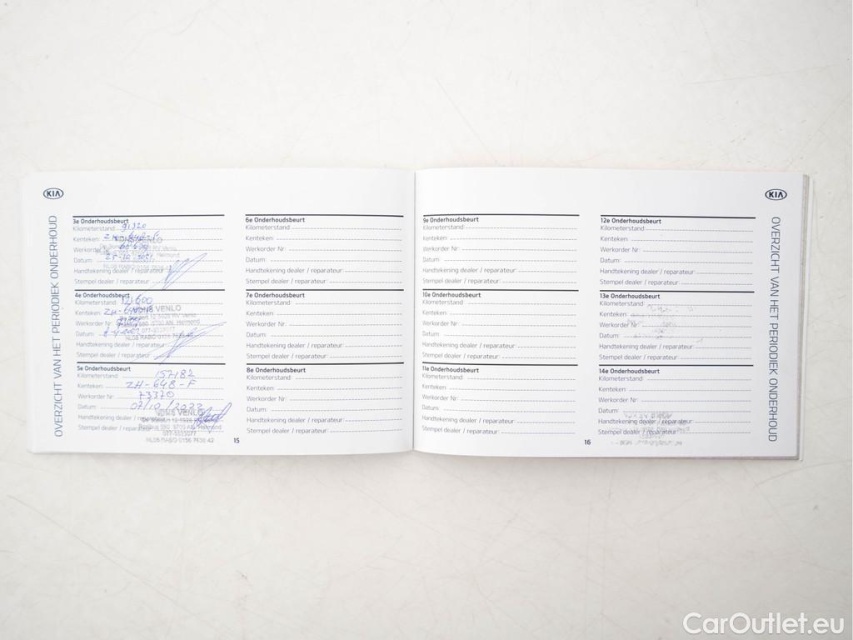 KIA
OVERZICHT VAN HET PERIODIEK ONDERHOUD
3e Onderhoudsbeurt
Kilometerstand
Kenteken
Werkorder Nr
Datum
Handtekening dealer / reparateur
Stempel dealer / reparateur
4e Onderhoudsbeurt
Kilometerstand
Kenteken
VENLO
Werkorder Nr
Datum
Handtekening dealer / reparateur
Stempel dealer / reparateur
5e Onderhoudsbeurt
Kilometerstand 157182
Kenteken ZH-648-F
Werkorder Nr 73370
Datum
VENLO
Handtekening dealer / reparateur
Stempel dealer / reparateur
6e Onderhoudsbeurt
Kilometerstand:
Kenteken:
Werkorder Nr:
Datum:
Handtekening dealer / reparateur:
Stempel dealer / reparateur:
7e Onderhoudsbeurt
Kilometerstand:
Kenteken:
Werkorder Nr:
Datum:
Handtekening dealer / reparateur:
Stempel dealer / reparateur:
8e Onderhoudsbeurt
Kilometerstand:
Kenteken:
Werkorder Nr:
Datum:
Handtekening dealer / reparateur:
Stempel dealer / reparateur:
15
9e Onderhoudsbeurt
Kilometerstand:
Kenteken:
Werkorder Nr:
Datum:
Handtekening dealer / reparateur:
Stempel dealer / reparateur:
10e Onderhoudsbeurt
Kilometerstand:
Kenteken:
Werkorder Nr:
Datum:
Handtekening dealer / reparateur:
Stempel dealer / reparateur:
11e Onderhoudsbeurt
Kilometerstand:
Kenteken:
Werkorder Nr:
Datum:
Handtekening dealer / reparateur:
Stempel dealer / reparateur:
16
12e Onderhoudsbeurt
Kilometerstand:
Kenteken:
Werkorder Nr:
Datum:
Handtekening dealer / reparateur:
Stempel dealer / reparateur:
13e Onderhoudsbeurt
Kilometerstand:
Kenteken:
Werkorder Nr:
Datum:
Handtekening dealer / reparateur:
Stempel dealer / reparateur:
14e Onderhoudsbeurt
Kilometerstand:
Kenteken:
Werkorder Nr:
Datum:
Handtekening dealer / reparateur:
Stempel dealer / reparateur:
KIA
OVERZICHT VAN HET PERIODIEK ONDERHOUD
CarOutlet.eu